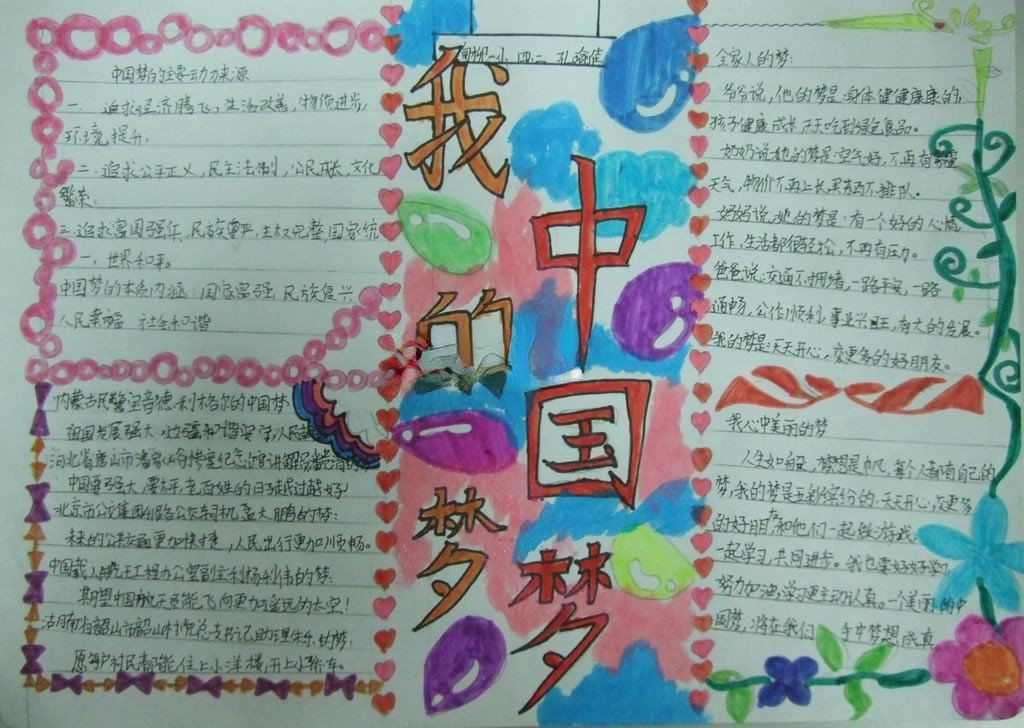 中国梦的主要动力来源
一. 追求经济腾飞,生活改善,物质进步,
环境提升.
二.追求公平正义,民主法制,公民成长,文化
繁荣、
三.追求富国强兵,民族尊严,主权完整,国家统
一,世界和平。
中国梦的本质内涵:国家富强 民族复兴
人民幸福 社会和谐
内蒙古民警宝音德·利格尔的中国梦:
祖国发展强大 边疆和谐安宁,人民
河北省唐山市潘家峪惨案纪念馆讲解员
中国要强大 要和平,老百姓的日子越过越好!
北京市公交集团 路公交司机孟大鹏的梦:
未来的公共交通更加快捷,人民出行更加顺畅。
中国载人航天工程办公室副主利杨利伟的梦:
期望中国航天员能飞向更加遥远的太空!
湖南省韶山市韶山村党总支书记助理 的梦:
原 村民都能住上小洋楼,开上小轿车。
我的梦
一小 四.二 孔
中国梦
全家人的梦:
爷爷说,他的梦是:身体健健康康的,
孩子健康成长,天天吃到绿色食品。
奶奶说她的梦是:空气好,不再有雾霾
天气,物价不再上长,买东西不排队。
妈妈说,她的梦是:有一个好的心情
工作,生活都很轻松,不再有压力。
爸爸说:交通不拥堵,一路平安,一路
通畅,公作顺利,事业兴旺,有大的发展。
我的梦是:天天开心,交更多的好朋友。
我心中美丽的梦
人生如船,梦想是帆,每个人都有自己的
梦,我的梦是五彩缤纷的.天天开心,交更多
的好朋友和他们一起做游戏,
一起学习,共同进步。我也要好好学习,
努力加油,学习更主动认真。一个美丽的中
国梦,将在我们 手中梦想成真